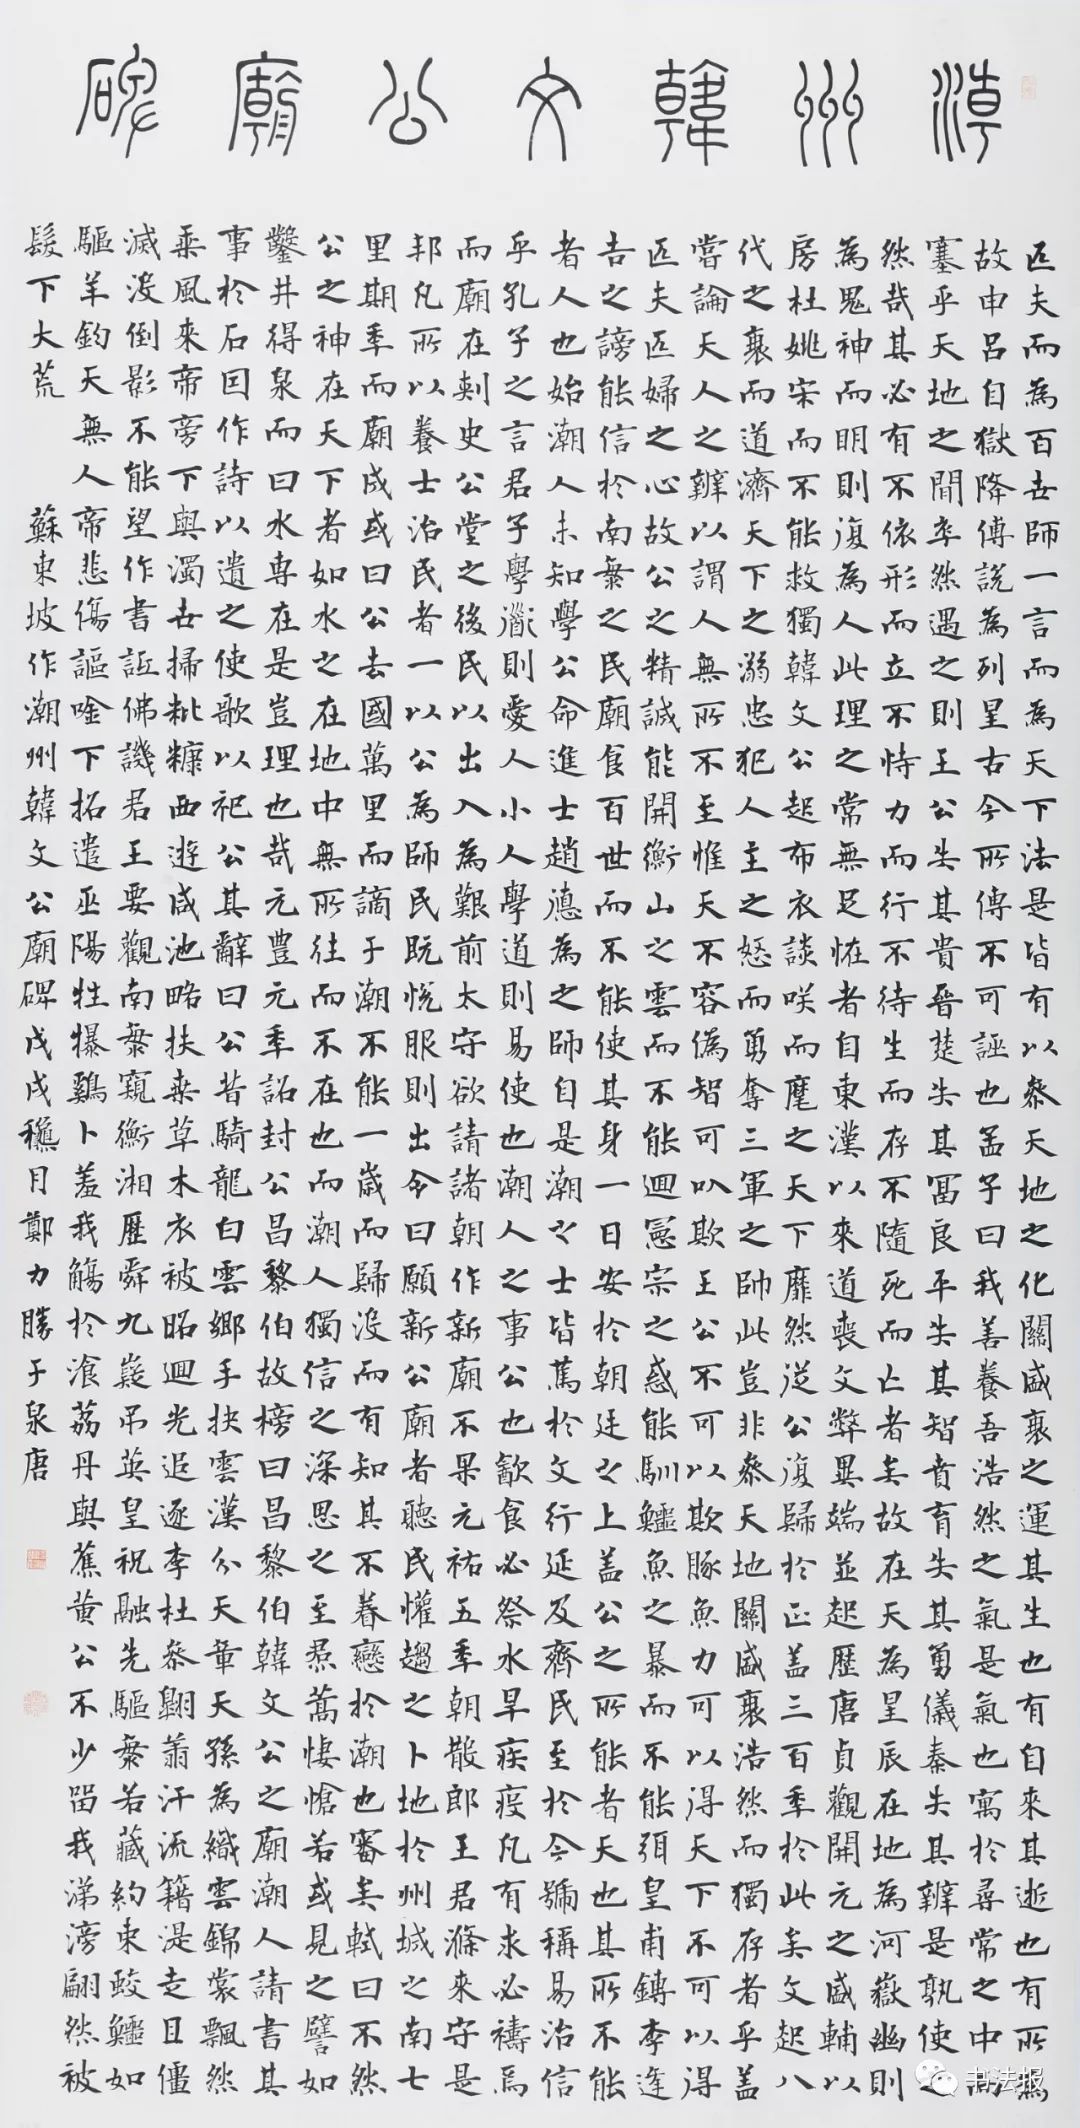 潮州韓文公廟碑
匹夫而為百世師一言而為天下法是皆有以參天地之化關盛衰之運其生也有自來其逝也有所為
故申呂自嶽降傅說為列星古今所傳不可誣也孟子曰我善養吾浩然之氣是氣也寓於尋常之中而
塞乎天地之間卒然遇之則王公失其貴晉楚失其富良平失其智賁育失其勇儀秦失其辯是孰使之
然哉其必有不依形而立不恃力而行不待生而存不隨死而亡者矣故在天為星辰在地為河嶽幽則
為鬼神而明則復為人此理之常無足怪者自東漢以來道喪文弊異端並起歷唐貞觀開元之盛輔以
房杜姚宋而不能救獨韓文公起布衣談咲而麾之天下靡然從公復歸於正蓋三百年於此矣文起八
代之衰而道濟天下之溺忠犯人主之怒而勇奪三軍之帥此豈非參天地關盛衰浩然而獨存者乎蓋
嘗論天人之辨以謂人無所不至惟天不容偽智可以欺王公不可以欺豚魚力可以得天下不可以得
匹夫匹婦之心故公之精誠能開衡山之雲而不能迴憲宗之惑能馴鱷魚之暴而不能弭皇甫鎛李逢
吉之謗能信於南海之民廟食百世而不能使其身一日安於朝廷之上蓋公之所能者天也其所不能
者人也始潮人未知學公命進士趙德為之師自是潮之士皆篤於文行延及齊民至於今號稱易治信
乎孔子之言君子學道則愛人小人學道則易使也潮人之事公也飲食必祭水旱疾疫凡有求必禱焉
而廟在刺史公堂之後民以出入為艱前太守欲請諸朝作新廟不果元祐五年朝散郎王君滌來守是
邦凡所以養士治民者一以公為師民既悅服則出令曰願新公廟者聽民懽趨之卜地於州城之南七
里期年而廟成或曰公去國萬里而謫于潮不能一歲而歸沒而有知其不眷戀於潮也審矣軾曰不然
公之神在天下者如水之在地中無所往而不在也而潮人獨信之深思之至焄蒿悽愴若或見之譬如
鑿井得泉而曰水專在是豈理也哉元豐元年詔封公昌黎伯故榜曰昌黎伯韓文公之廟潮人請書其
事於石因作詩以遺之使歌以祀公其辭曰公昔騎龍白雲鄉手抉雲漢分天章天孫為織雲錦裳飄然
乘風來帝旁下與濁世掃秕糠西遊咸池略扶桑草木衣被昭迴光追逐李杜參翱翔汗流籍湜走且僵
滅沒倒影不能望作書詆佛譏君王要觀南海窺衡湘歷舜九嶷弔英皇祝融先驅海若藏約束蛟鱷如
驅羊鈞天無人帝悲傷謳唫下招遣巫陽犦牲鷄卜羞我觴於湌荔丹與蕉黃公不少留我涕滂翩然被
髮下大荒 蘇東坡作潮州韓文公廟碑戊戌穐月鄭力勝于泉唐
书法报